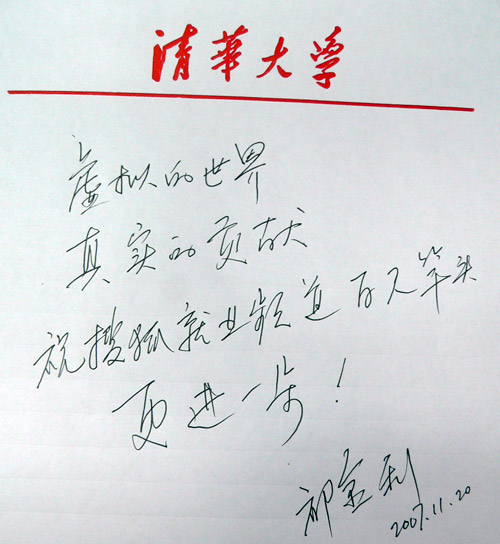 清華大学
虚拟的世界
真实的贡献
祝搜狐就业频道百尺竿头
更进一步！
祁金利
2007.11.20